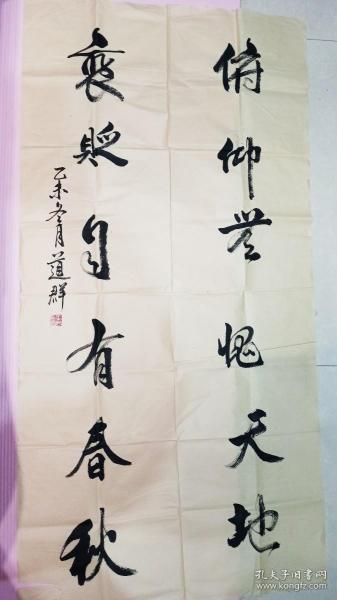 俯仰无愧天地
褒貶自有春秋
乙未冬月道群
孔夫子旧书网